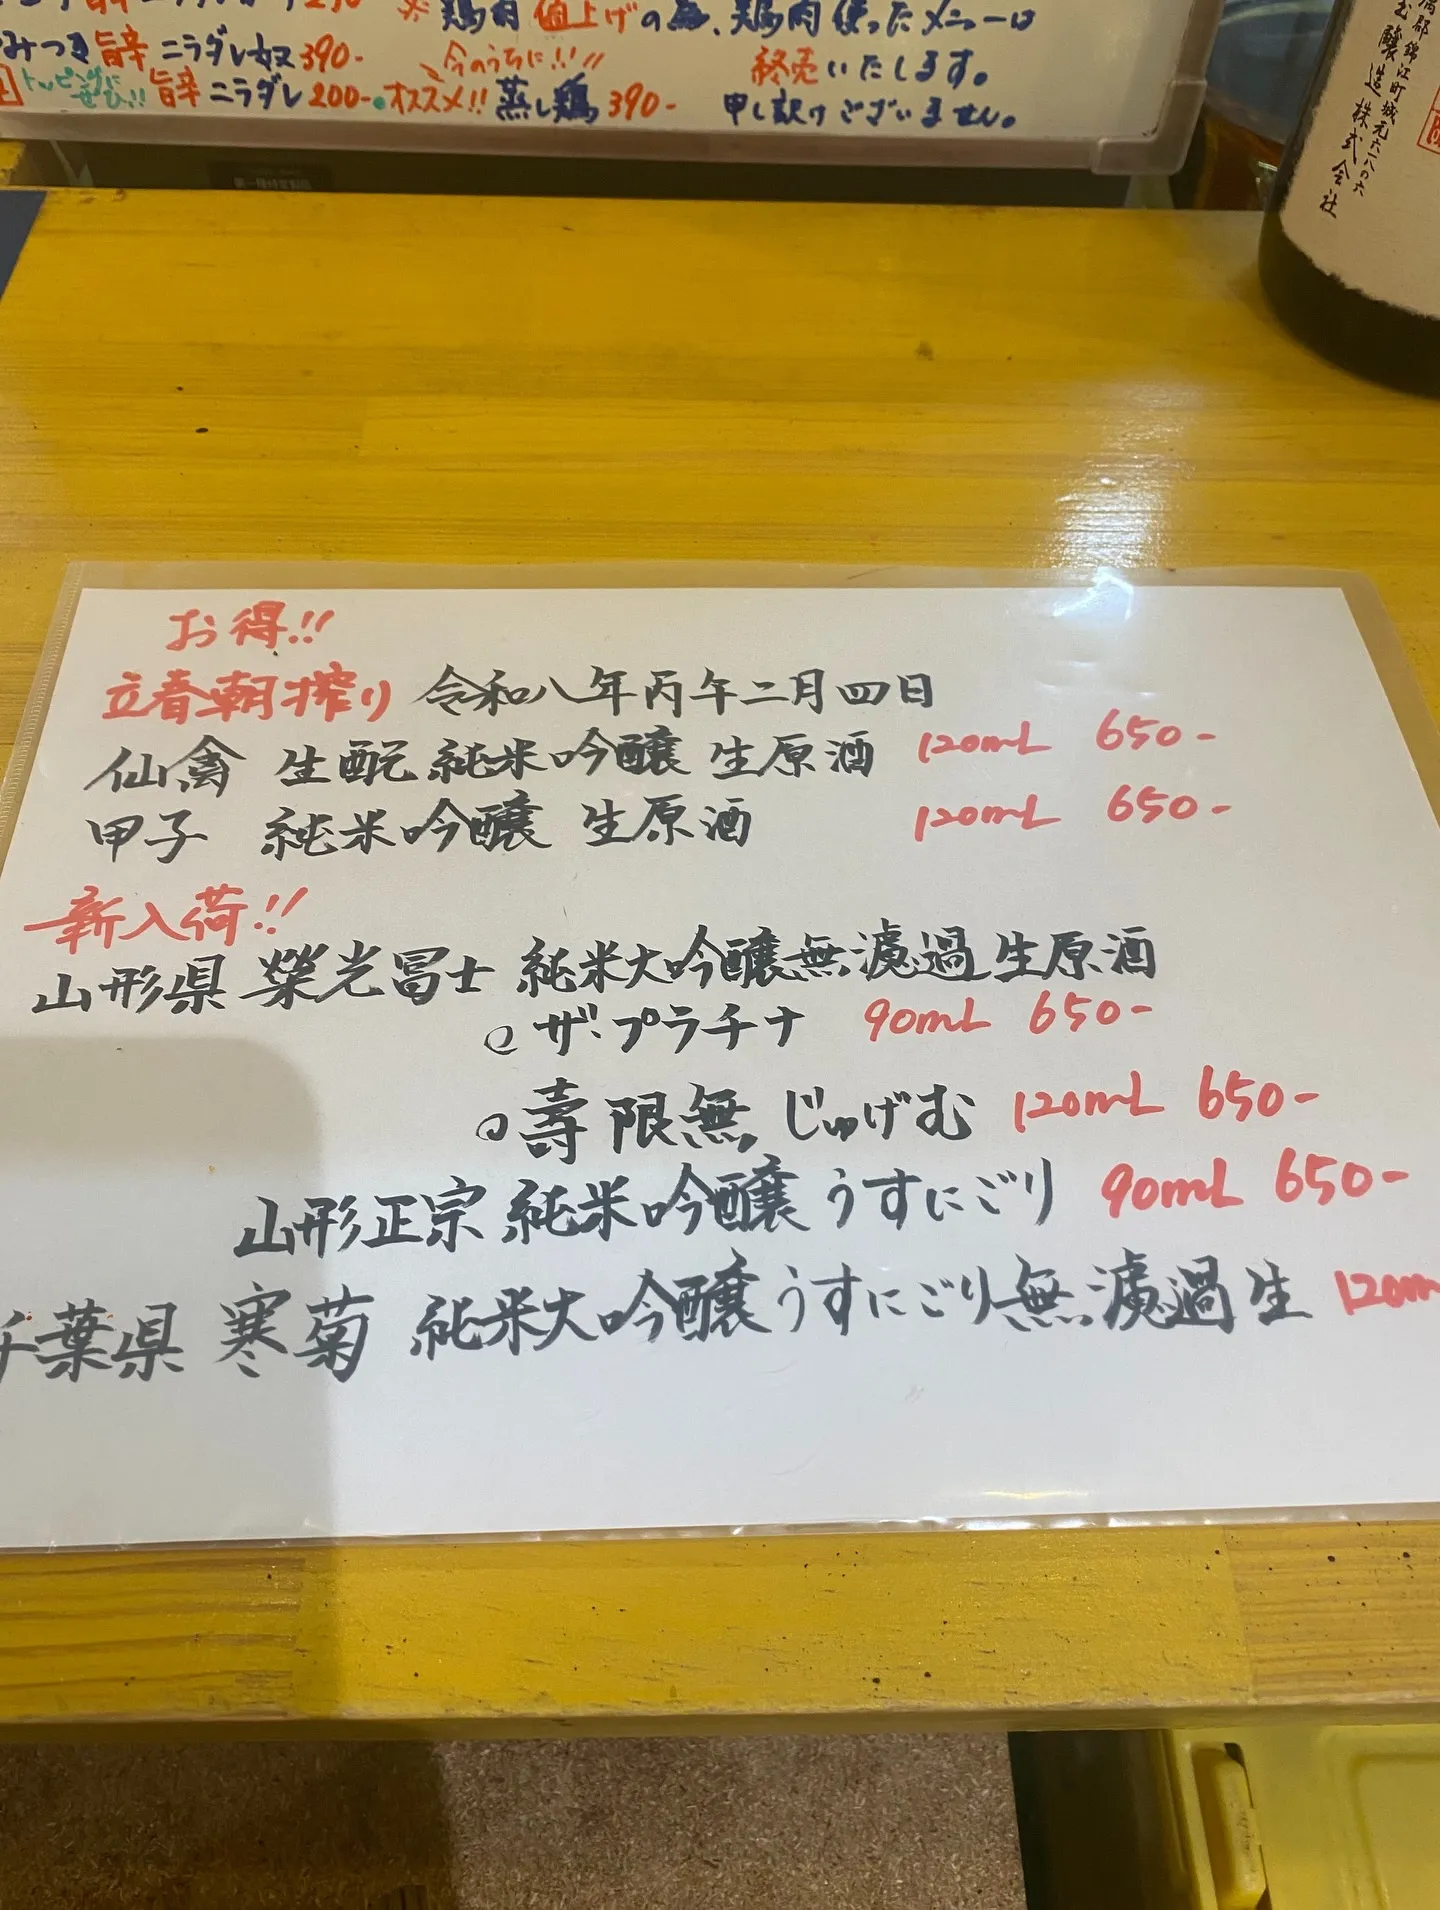 ※鶏肉値上げの為、鶏肉使ったメニューは
終売いたします。
申し訳けございません。
みつき旨辛ニラダレ奴390-
今のうちに!!
トッピングに
ぜひ!!
旨辛ニラダレ200-
オススメ!!蒸し鶏390-
錦江町城元六一八の六
醸造株式会社
お得!!
立春朝搾り 令和八年丙午二月四日
仙禽 生酛純米吟醸 生原酒 120mL 650-
甲子 純米吟醸 生原酒 120mL 650-
新入荷!!
山形県 榮光冨士 純米大吟醸無濾過生原酒
ザ・プラチナ 90mL 650-
壽限無 じゅげむ 120mL 650-
山形正宗 純米吟醸うすにごり 90mL 650-
千葉県 寒菊 純米大吟醸うすにごり無濾過生 120m